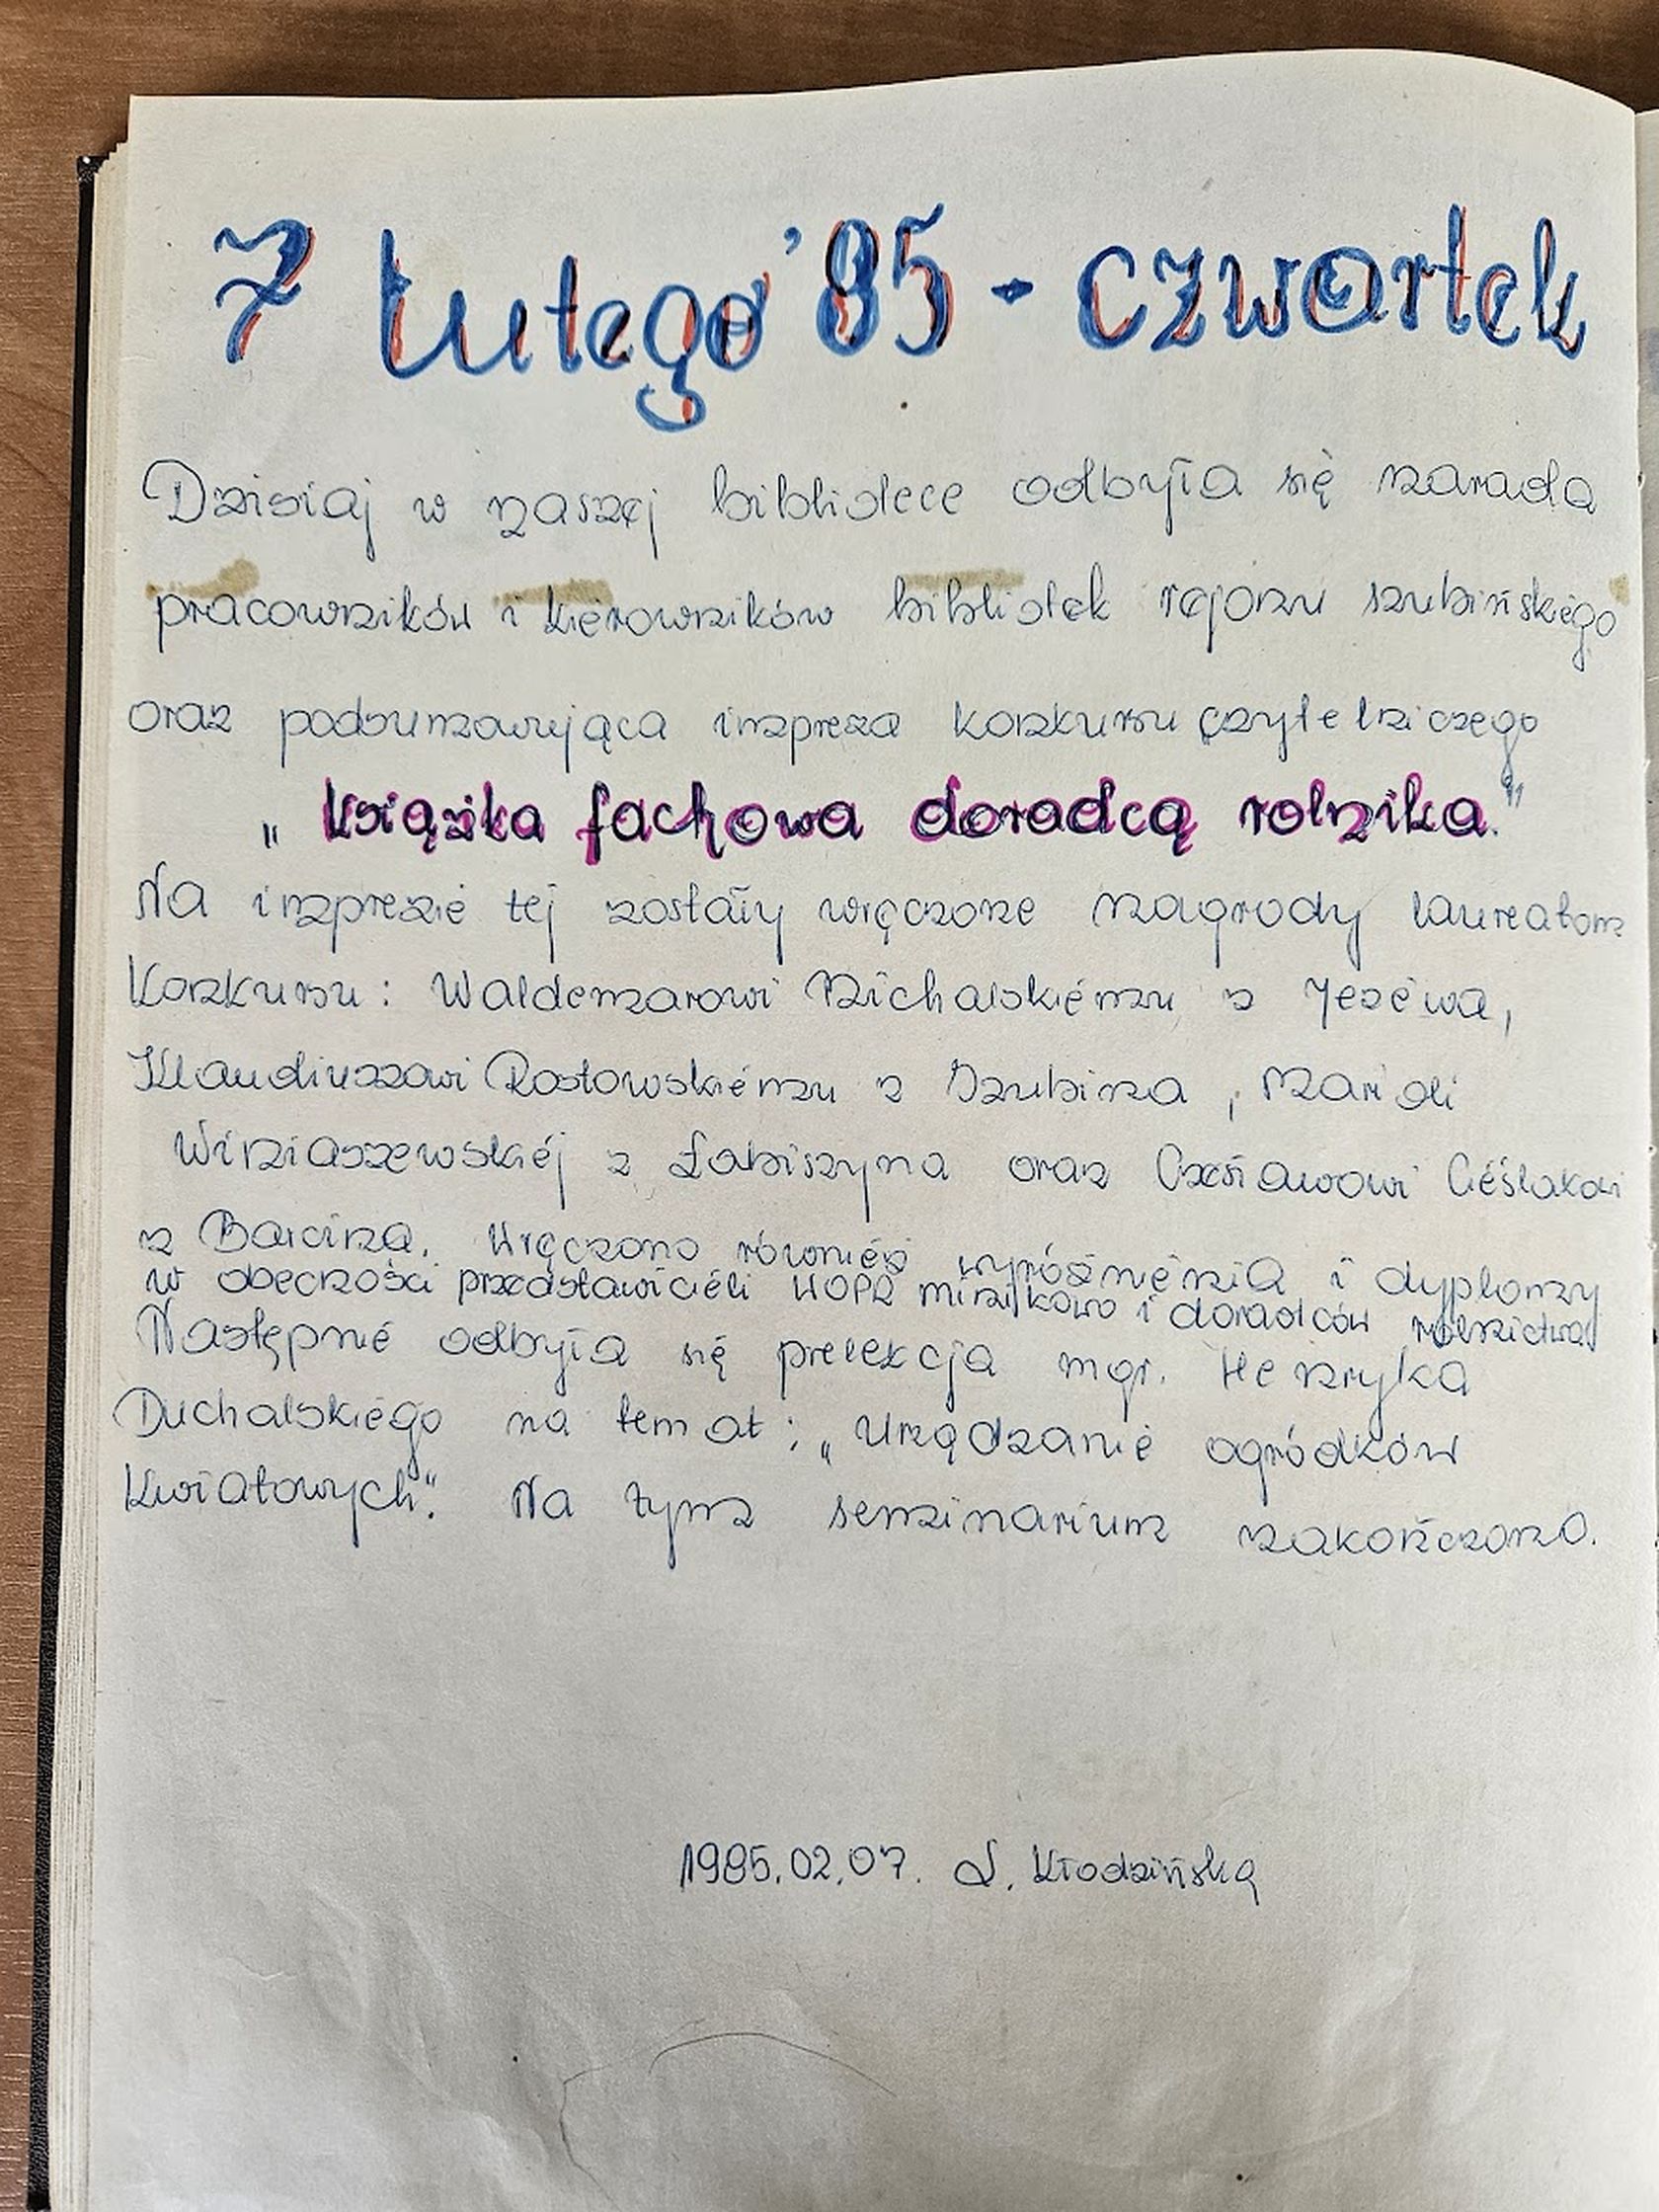 7 Lutego '85 - czwartek
Dzisiaj w naszej bibliotece odbyła się narada
pracowników i kierowników bibliotek rejonu szubińskiego
oraz podsumowująca impreza konkursu czytelniczego
„Książka fachowa doradcą rolnika."
Na imprezie tej zostały wręczone nagrody laureatom
Konkursu: Waldemarowi Michalskiemu z Jeżewa,
Klaudiuszowi Rostowskiemu z Szubina, Marioli
Winiaszewskiej z Łabiszyna oraz Czesławowi Cieślakowi
z Barcina. Wręczono również wyróżnienia i dyplomy
w obecności przedstawicieli WOPR Minikowo i doradców rolnictwa
Następnie odbyła się prelekcja mgr. Henryka
Duchalskiego na temat: „Urządzanie ogródków
Kwiatowych". Na tym seminarium zakończono.
1985.02.07. L. Kłodzińska